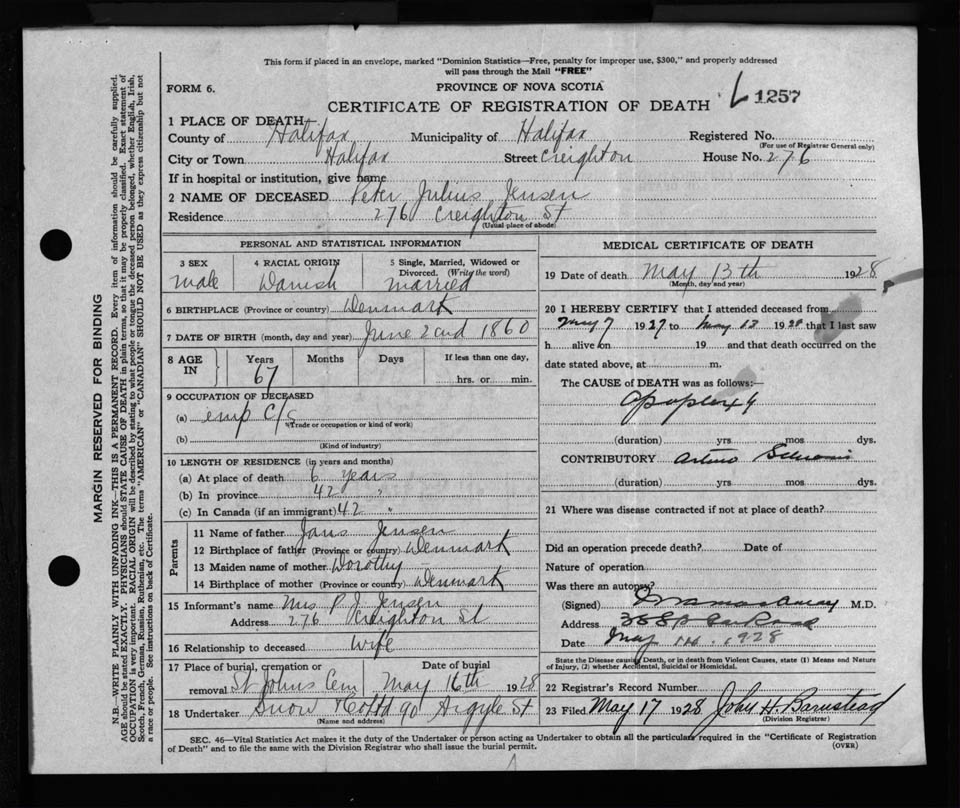 This form if placed in an envelope, marked "Dominion Statistics—Free, penalty for improper use, $300," and properly addressed
will pass through the Mail "FREE"
FORM 6.
PROVINCE OF NOVA SCOTIA
CERTIFICATE OF REGISTRATION OF DEATH
1257
1 PLACE OF DEATH
County of Halifax Municipality of Halifax Registered No.
(For use of Registrar General only)
City or Town Halifax Street Creighton House No. 276
If in hospital or institution, give name
2 NAME OF DECEASED Peter Julius Jensen
Residence 276 Creighton St
(Usual place of abode)
PERSONAL AND STATISTICAL INFORMATION
3 SEX
male
4 RACIAL ORIGIN
Danish
5 Single, Married, Widowed or
Divorced. (Write the word)
married
6 BIRTHPLACE (Province or country) Denmark
7 DATE OF BIRTH (month, day and year) June 2nd 1860
8 AGE IN
Years
67
Months
Days
If less than one day,
hrs. or min.
9 OCCUPATION OF DECEASED
(a) emp
(Trade or occupation or kind of work)
(b)
(Kind of industry)
10 LENGTH OF RESIDENCE (in years and months)
(a) At place of death 6 years
(b) In province 42 "
(c) In Canada (if an immigrant) 42 "
Parents
11 Name of father Jans Jensen
12 Birthplace of father (Province or country) Denmark
13 Maiden name of mother Dorothy —
14 Birthplace of mother (Province or country) Denmark
15 Informant's name Mrs P J Jensen
Address 276 Creighton St
16 Relationship to deceased wife
17 Place of burial, cremation or Date of burial
removal St Johns Cem May 16th 1928
18 Undertaker Snow 90 Argyle St
(Name and address)
MEDICAL CERTIFICATE OF DEATH
19 Date of death May 13th 1928
(Month, day and year)
20 I HEREBY CERTIFY that I attended deceased from
May 7 1927 to May 13 1928 that I last saw
h alive on 19 and that death occurred on the
date stated above, at m.
The CAUSE of DEATH was as follows:—
Apoplexy
(duration) yrs mos dys.
CONTRIBUTORY Arterio
(duration) yrs. mos. dys.
21 Where was disease contracted if not at place of death?
Did an operation precede death? Date of
Nature of operation
Was there an autopsy?
(Signed) M.D.
Address
Date May 1928
State the Disease causing Death, or in death from Violent Causes, state (1) Means and Nature
of Injury, (2) whether Accidental, Suicidal or Homicidal.
22 Registrar's Record Number
23 Filed May 17 1928 John H. Barnstead
(Division Registrar)
SEC. 46—Vital Statistics Act makes it the duty of the Undertaker or person acting as Undertaker to obtain all the particulars required in the "Certificate of Registration
of Death" and to file the same with the Division Registrar who shall issue the burial permit.
(OVER)
MARGIN RESERVED FOR BINDING
N.B.—WRITE PLAINLY WITH UNFADING INK—THIS IS A PERMANENT RECORD. Every item of information should be carefully supplied.
AGE should be stated EXACTLY. PHYSICIANS should STATE CAUSE OF DEATH in plain terms, so that it may be properly classified. Exact statement of
OCCUPATION is very important. RACIAL ORIGIN will be described by stating to what people or tongue the deceased person belonged, whether English, Irish,
Scotch, French, German, Russian, Ruthenian, etc. The terms "AMERICAN" or "CANADIAN" SHOULD NOT BE USED as they express citizenship but not
a race or people. See instructions on back of Certificate.